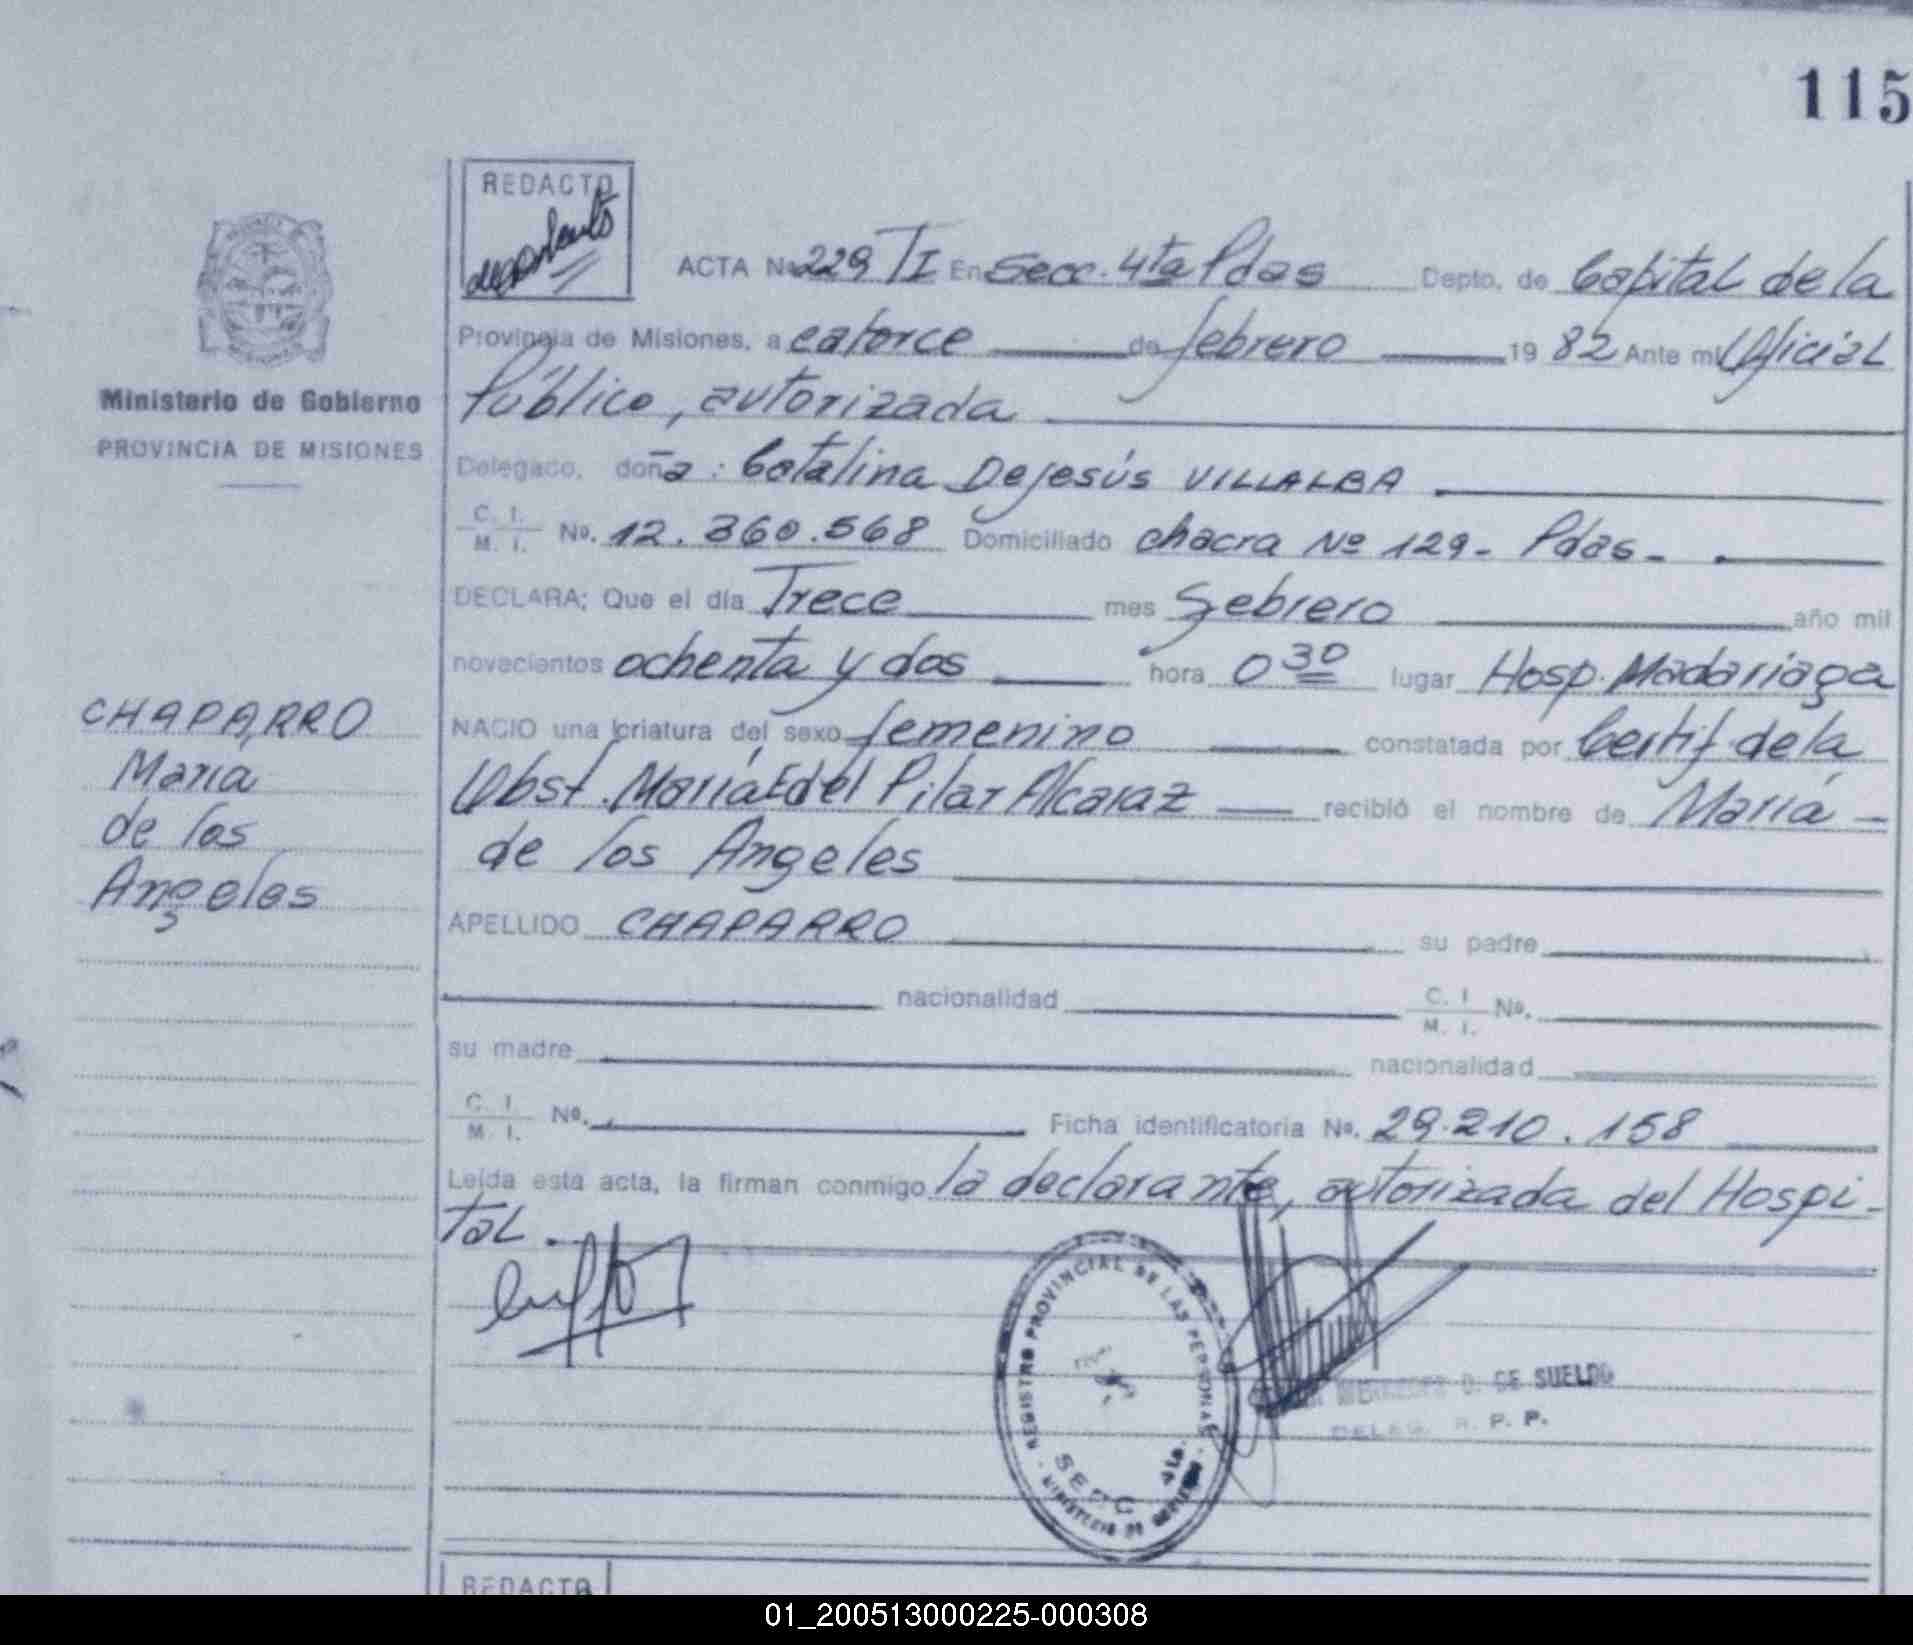 115
REDACTO
ACTA No 229 TI En Secc. 4ta Pdas Depto. de Capital de la
Provincia de Misiones, a catorce de febrero 19 82 Ante mi Oficial
Público, autorizada
Ministerio de Gobierno
PROVINCIA DE MISIONES
Delegado, doña: Catalina DeJesús VILLALBA
C. I. M. I. No. 12.360.568 Domiciliado chacra Nº 129- Pdas-
DECLARA; Que el día Trece mes febrero año mil
novecientos ochenta y dos hora 0 30 lugar Hosp. Madariaga
NACIO una criatura del sexo femenino constatada por Certif de la
Obst. María E del Pilar Alcaraz recibió el nombre de María
de los Angeles
CHAPARRO
María
de los
Angeles
APELLIDO CHAPARRO su padre
nacionalidad C. I. M. I. No.
su madre nacionalidad
C. I. M. I. No. Ficha identificatoria No. 29.210.158
Leída esta acta, la firman conmigo la declarante, autorizada del Hospi-
tal.
REGISTRO PROVINCIAL DE LAS PERSONAS
SECC 4ta.
MINISTERIO DE GOBIERNO
D. DE SUELDO
DELEG. R. P. P.
REDACTO
01_200513000225-000308